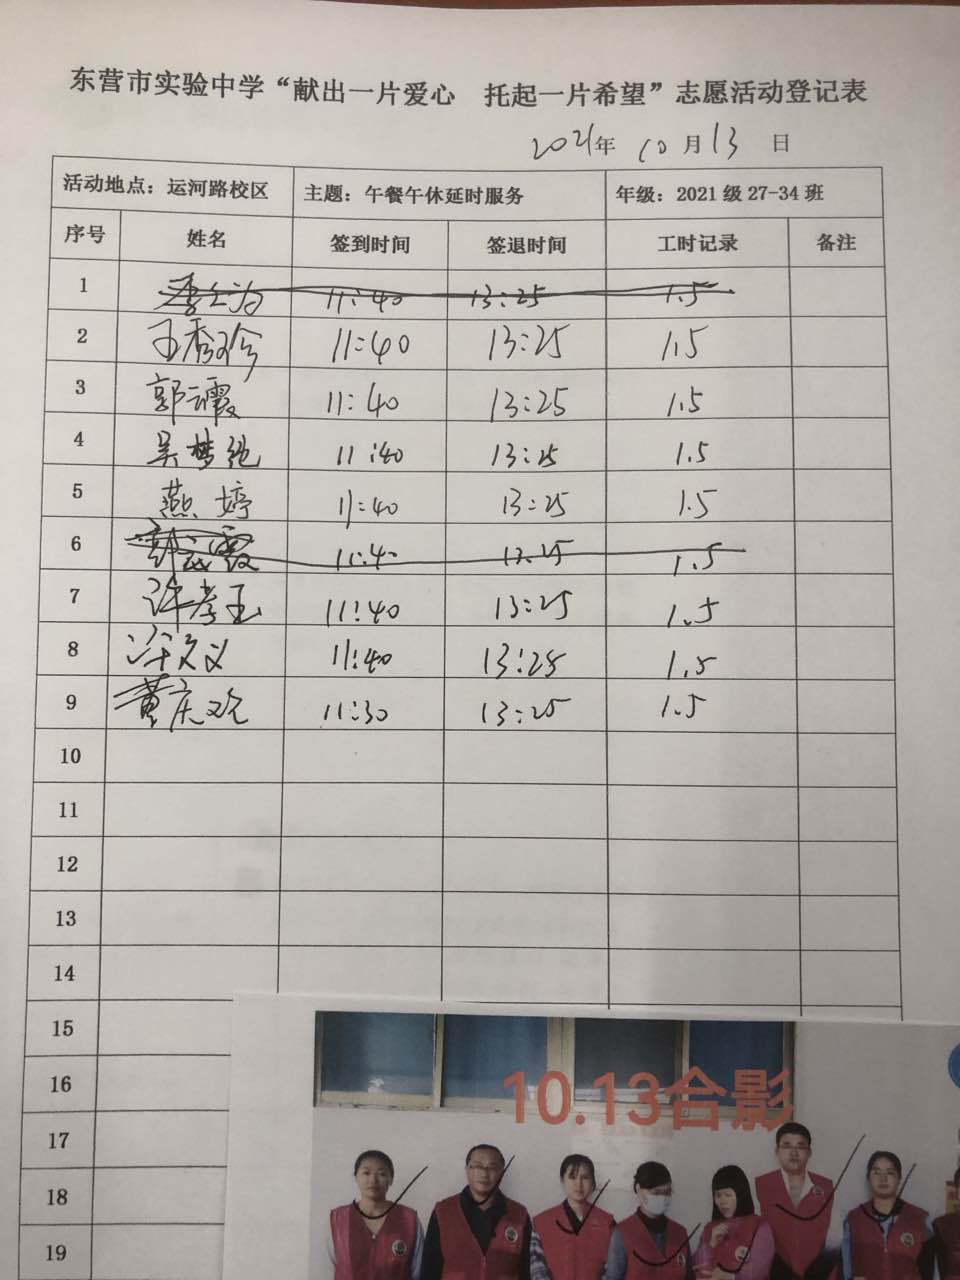 东营市实验中学“献出一片爱心 托起一片希望”志愿活动登记表
2021年 10月13日
活动地点：运河路校区 主题：午餐午休延时服务 年级：2021级27-34班
序号 姓名 签到时间 签退时间 工时记录 备注
1 11:40 13:25 1.5
2 王秀珍 11:40 13:25 1.5
3 郭云霞 11:40 13:25 1.5
4 吴梦 11:40 13:25 1.5
5 燕婷 11:40 13:25 1.5
6 11:40 13:25 1.5
7 许孝玉 11:40 13:25 1.5
8 11:40 13:25 1.5
9 黄庆欢 11:30 13:25 1.5
10
11
12
13
14
15
16
17
18
19
10.13合影